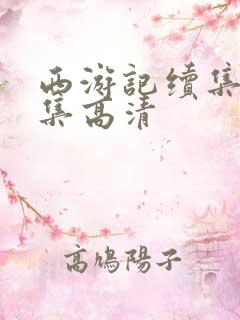 西游記續集
集高清
高鳩陽子